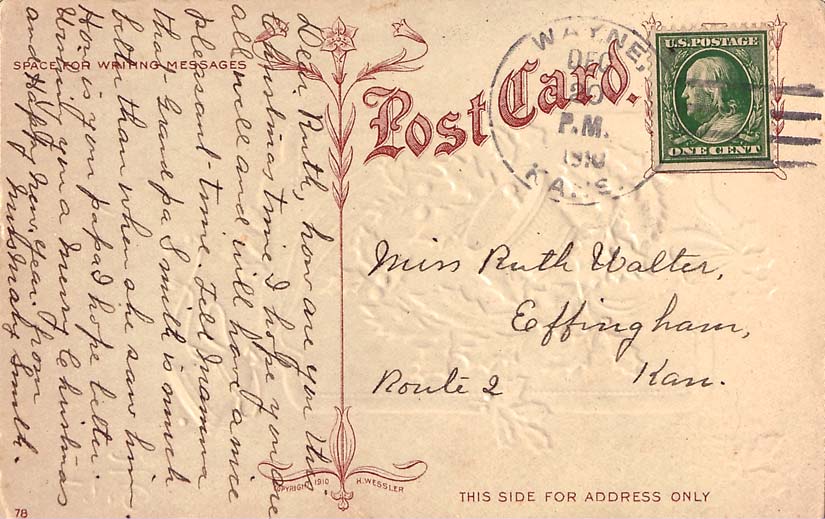 SPACE FOR WRITING MESSAGES
Post Card.
WAYNE,
DEC
20
P.M.
1910
KANS.
U.S. POSTAGE
ONE CENT
Dear Ruth, how are you this
Christmas time I hope you are
all well and will have a nice
pleasant time. Tell Mamma
that Grand pa Smith is much
better than when she saw him
How is you papa I hope better.
Wishing you a Merry Christmas
and Happy New Year. from
Miss Mary Smith.
Miss Ruth Walter,
Effingham,
Route 2 Kan.
COPYRIGHT 1910 H. WESSLER
THIS SIDE FOR ADDRESS ONLY
78